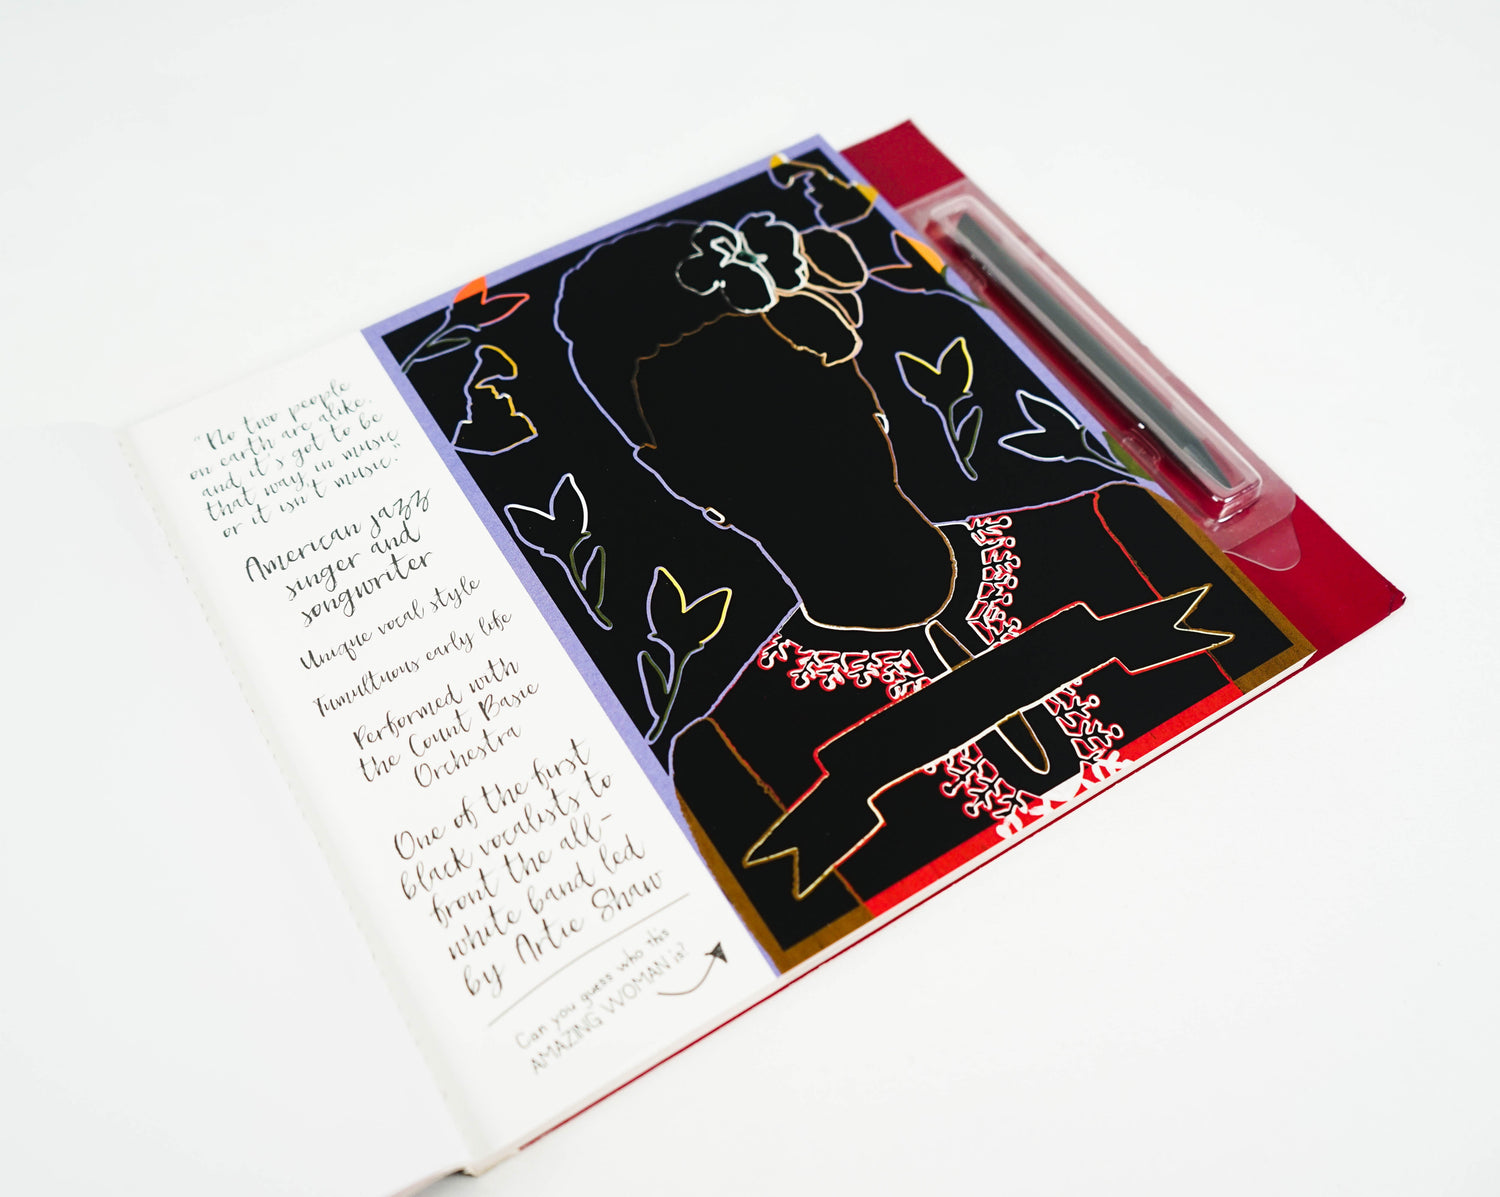 "No two people
on earth are alike,
and it's got to be
that way in music
or it isn't music."
American jazz
singer and
songwriter
Unique vocal style
Tumultuous early life
Performed with
the Count Basie
Orchestra
One of the first
black vocalists to
front the all-
white band led
by Artie Shaw
Can you guess who this
AMAZING WOMAN is?